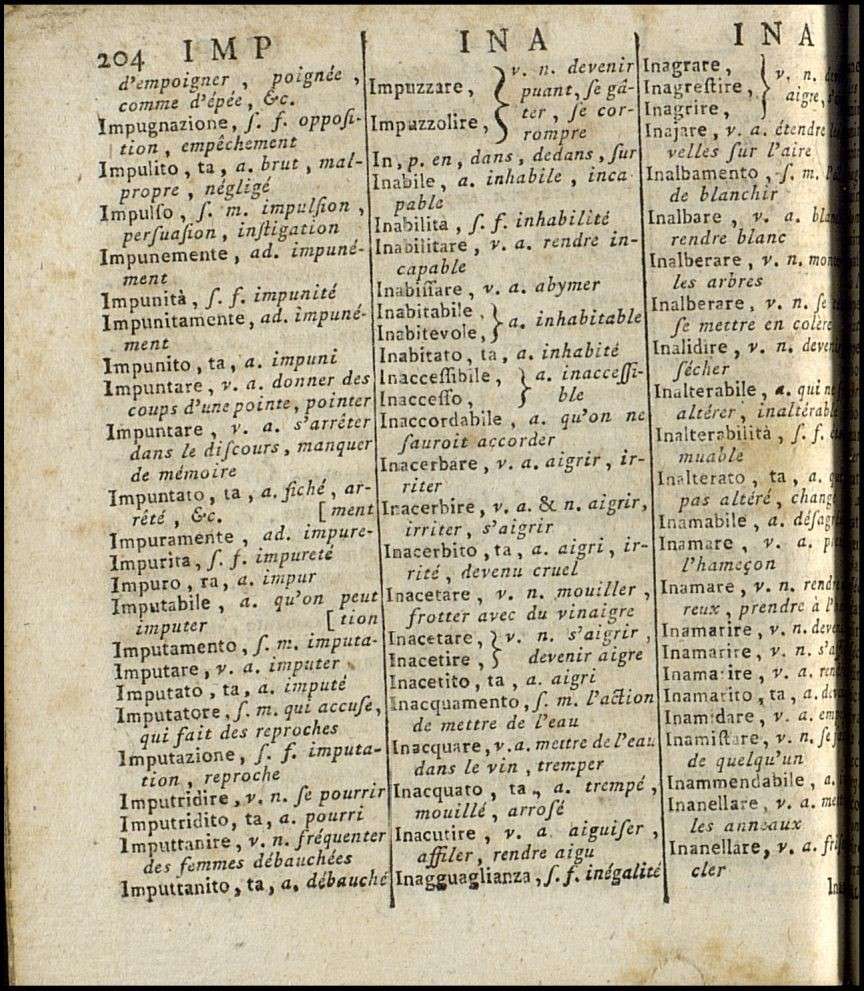 204 IMP
d'empoigner, poignée,
comme d'épée, &c.
Impugnazione, ſ. f. oppoſi-
tion, empêchement
Impulito, ta, a. brut, mal-
propre, négligé
Impulſo, ſ. m. impulſion,
perſuaſion, inſtigation
Impunemente, ad. impuné-
ment
Impunità, ſ. f. impunité
Impunitamente, ad. impuné-
ment
Impunito, ta, a. impuni
Impuntare, v. a. donner des
coups d'une pointe, pointer
Impuntare, v. a. s'arrêter
dans le diſcours, manquer
de mémoire
Impuntato, ta, a. fiché, ar-
rêté, &c. [ment
Impuramente, ad. impure-
Impurita, ſ. f. impureté
Impuro, ra, a. impur
Imputabile, a. qu'on peut
imputer [tion
Imputamento, ſ. m. imputa-
Imputare, v. a. imputer
Imputato, ta, a. imputé
Imputatore, ſ. m. qui accuſe,
qui fait des reproches
Imputazione, ſ. f. imputa-
tion, reproche
Imputridire, v. n. ſe pourrir
Imputridito, ta, a. pourri
Imputtanire, v. n. fréquenter
des femmes débauchées
Imputtanito, ta, a. débauché
INA
Impuzzare, } v. n. devenir
puant, ſe gâ-
Impuzzolire, } ter, ſe cor-
rompre
In, p. en, dans, dedans, ſur
Inabile, a. inhabile, inca
pable
Inabilita, ſ. f. inhabilité
Inabilitare, v. a. rendre in-
capable
Inabiſſare, v. a. abymer
Inabitabile, } a. inhabitable
Inabitevole, }
Inabitato, ta, a. inhabité
Inacceſſibile, } a. inacceſſi-
Inacceſſo, } ble
Inaccordabile, a. qu'on ne
ſauroit accorder
Inacerbare, v. a. aigrir, ir-
riter
Inacerbire, v. a. & n. aigrir,
irriter, s'aigrir
Inacerbito, ta, a. aigri, ir-
rité, devenu cruel
Inacetare, v. n. mouiller,
frotter avec du vinaigre
Inacetare, } v. n. s'aigrir,
Inacetire, } devenir aigre
Inacetito, ta, a. aigri
Inacquamento, ſ. m. l'action
de mettre de l'eau
Inacquare, v. a. mettre de l'eau
dans le vin, tremper
Inacquato, ta, a. trempé,
mouillé, arroſé
Inacutire, v. a. aiguiſer,
affiler, rendre aigu
Inagguaglianza, ſ. f. inégalité
INA
Inagrare, }
Inagreſtire, } v. n.
Inagrire, } aigre,
Inajare, v. a. étendre
velles ſur l'aire
Inalbamento, ſ. m.
de blanchir
Inalbare, v. a.
rendre blanc
Inalberare, v. n.
les arbres
Inalberare, v. n. ſe
ſe mettre en colère
Inalidire, v. n.
ſécher
Inalterabile, a. qui ne
altérer,
Inalterabilità, ſ. f.
muable
Inalterato, ta, a.
pas altéré,
Inamabile, a.
Inamare, v. a.
l'hameçon
Inamare, v. n.
reux, prendre à
Inamarire, v. n.
Inamarire, v. n.
Inamarire, v. a.
Inamarito, ta, a.
Inamidare, v. a.
Inamiſtare, v. n. ſe
de quelqu'un
Inammendabile, a.
Inanellare, v. a.
les anneaux
Inanellare, v. a.
cler